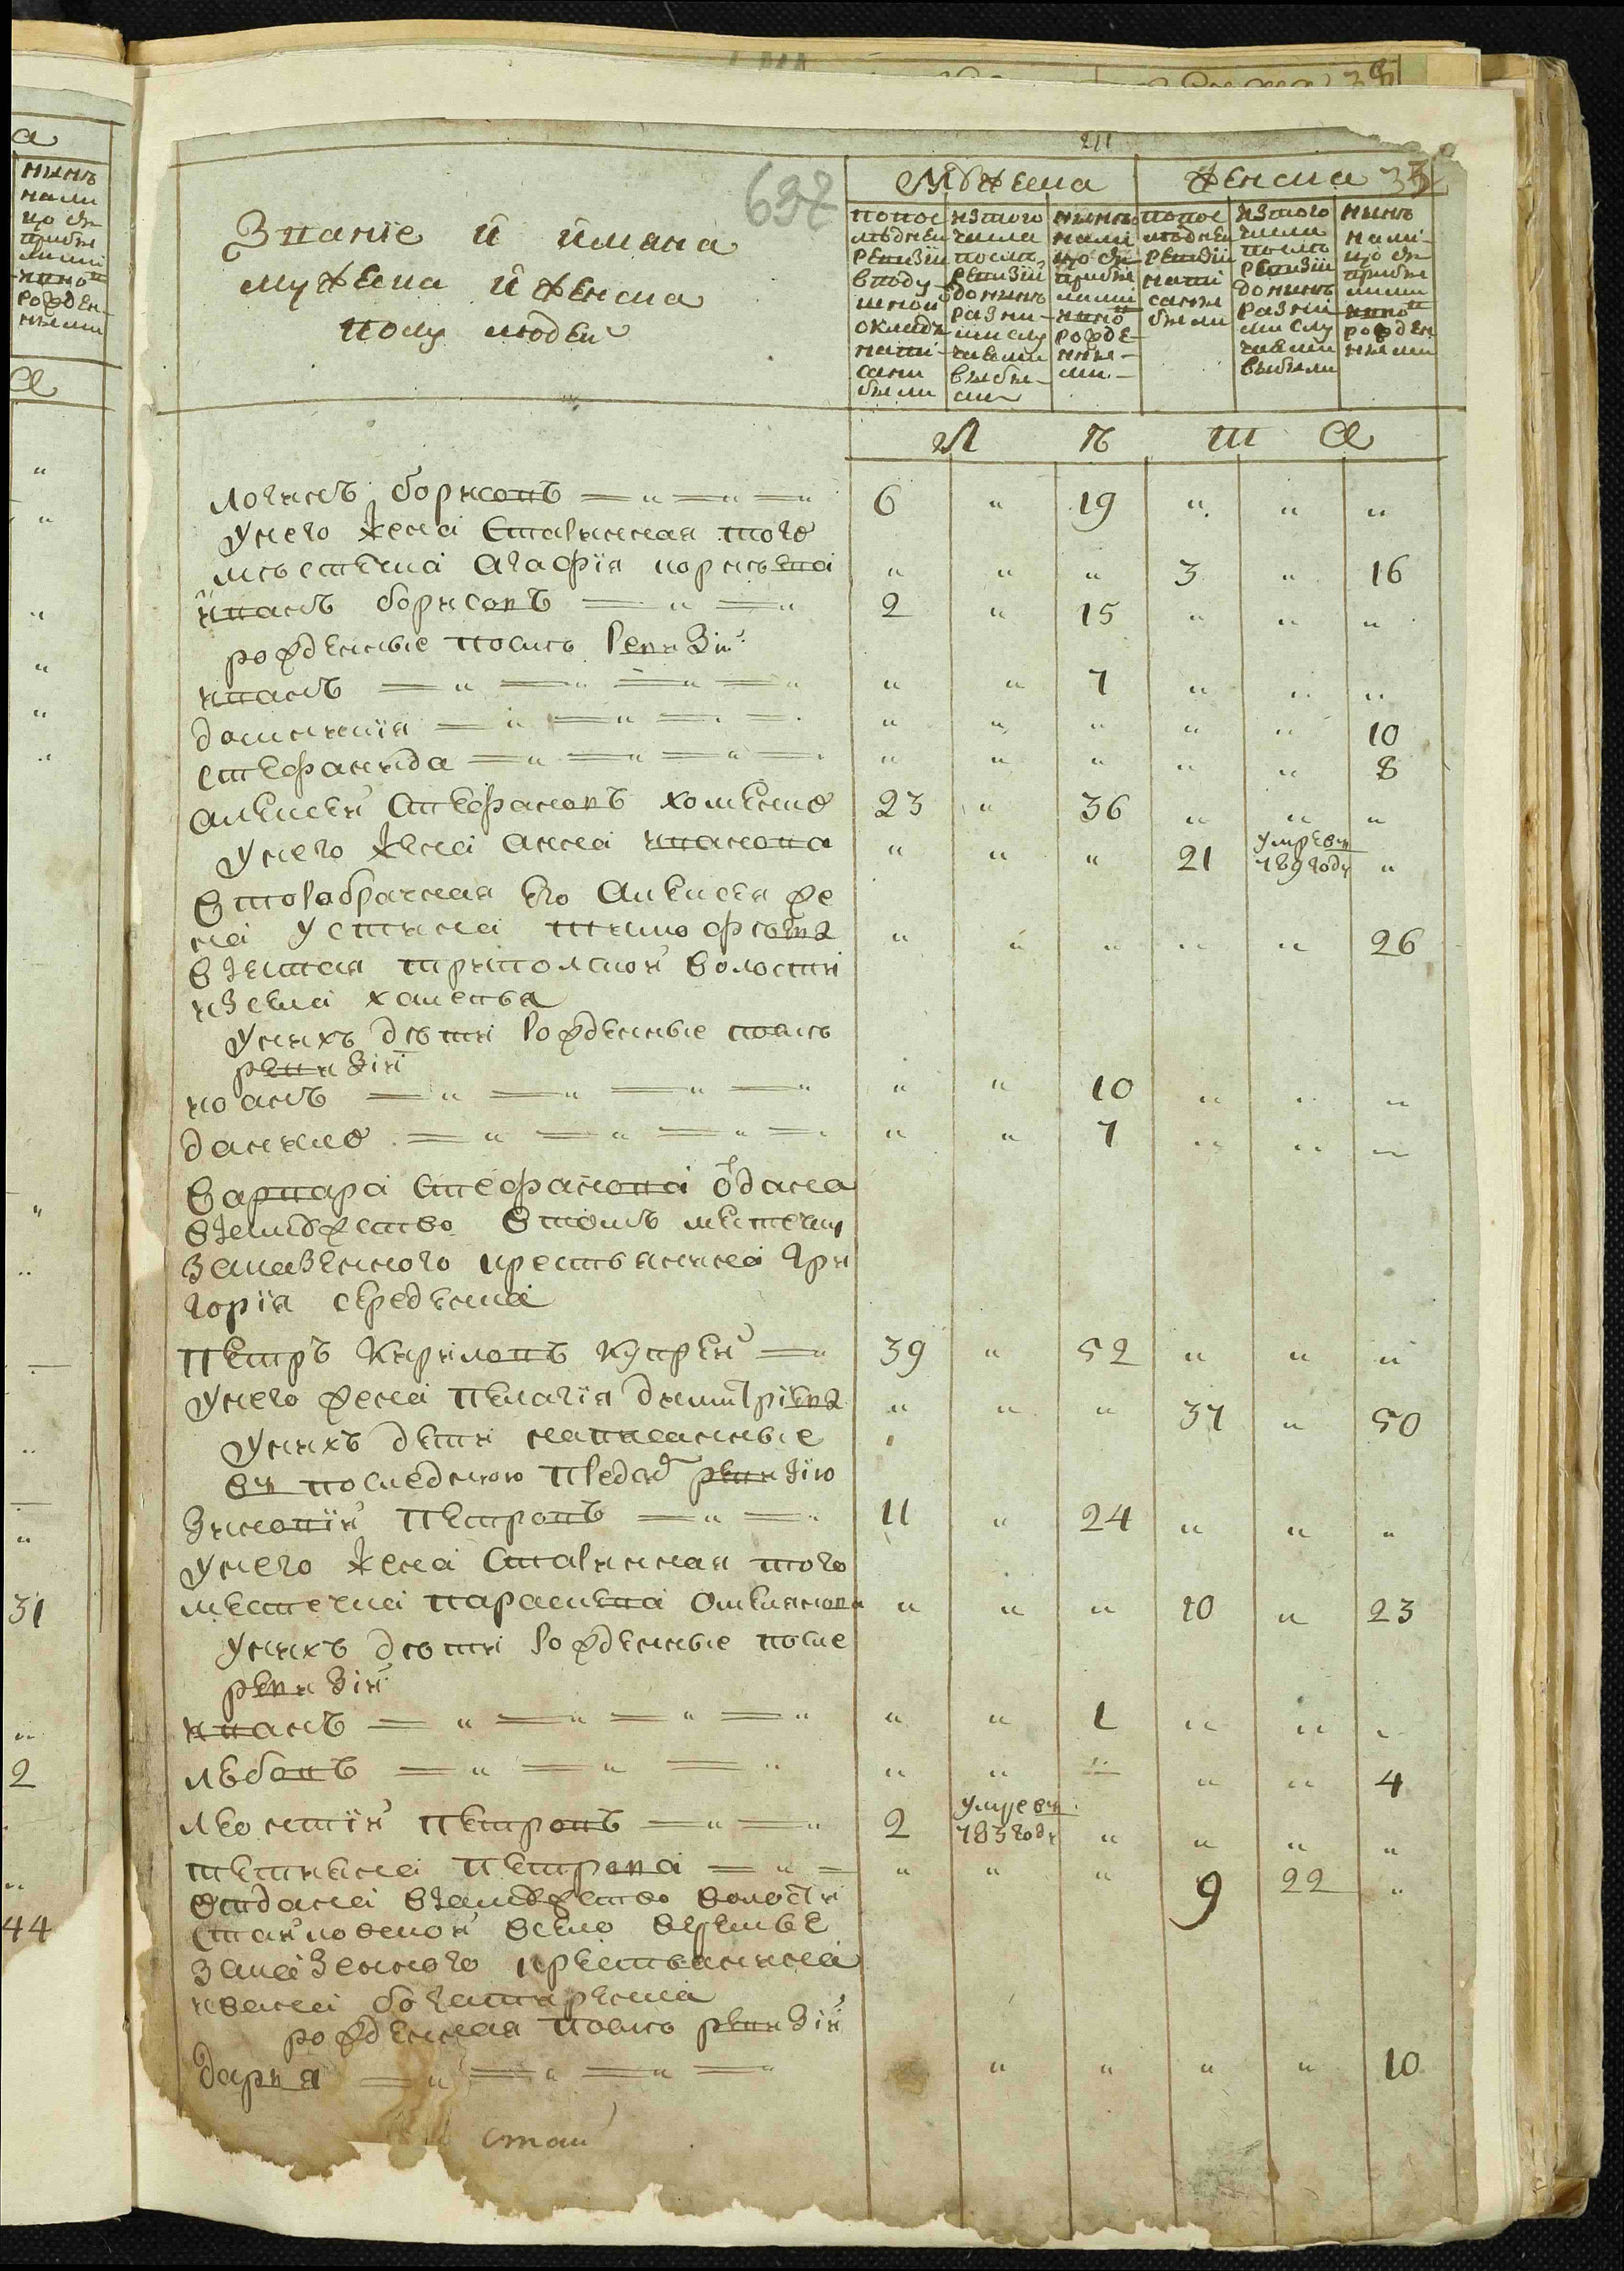 211
637
Званіе и имяна
мужеска и женска
полу людей
Мужеска
Женска
33
попос
леднеи
ревизіи
вподу
шном
окладе
напи
саны
были
изтого
числа
после
ревизіи
доныне
разны
ми слу
чаями
выбы
ли
ныне
нали
цо съ
прибы
лыми
и вно
рожде
нны
ми
попос
леднеи
ревизіи
напи
саны
были
изтого
числа
после
ревизіи
доныне
разны
ми слу
чаями
выбыли
ныне
нали
цо съ
прибы
лыми
и вно
рожден
ными
Л Ѣ Т А
логинъ борисовъ 6 " 19 " " "
Унего жена Старинная того
местечка Агафія корнѣева " " " 3 " 16
иванъ борисовъ 2 " 15 " " "
рожденные послѣ ревизіи
иванъ " " 7 " " "
домникія " " " " " 10
стефанида " " " " " 8
Алексей Стефановъ хоменко 23 " 36 " " "
Унего жена анна иванова " " " 21 умре въ 789 году "
Второбрачная его Алексея же
на Устина тимофѣева " " " " " 26
взятая трипольской волости
изсела халепья
Унихъ дѣти рожденные послѣ
ревизіи
иоанъ " " 10 " " "
данило " " 7 " " "
варвара Стефанова отдана
взамужество втомъ местечку
заказенного крестьянина гри
горія середенка
Петръ Кириловъ Купрей 39 " 52 " " "
Унего жена пелагія димитріева " " " 37 " 50
Унихъ дети написанные
въ последнюю предъ ревизію
Зиновій Петровъ 11 " 24 " " "
Унего жена Старинная того
местечка параскева Омелянова " " " 10 " 23
Унихъ дѣти рожденные после
ревизіи
иванъ " " 1 " " "
любовъ " " " " " 4
леонтій петровъ 2 умре въ 783 году " " " "
тетяна петрова " " " 9 22 "
выдана взамужество волости
Стайковской всело веремье
заказенного крестьянина
ивана богатиренка
рожденная послѣ ревизіи
Дарья " " " " 10
Стай